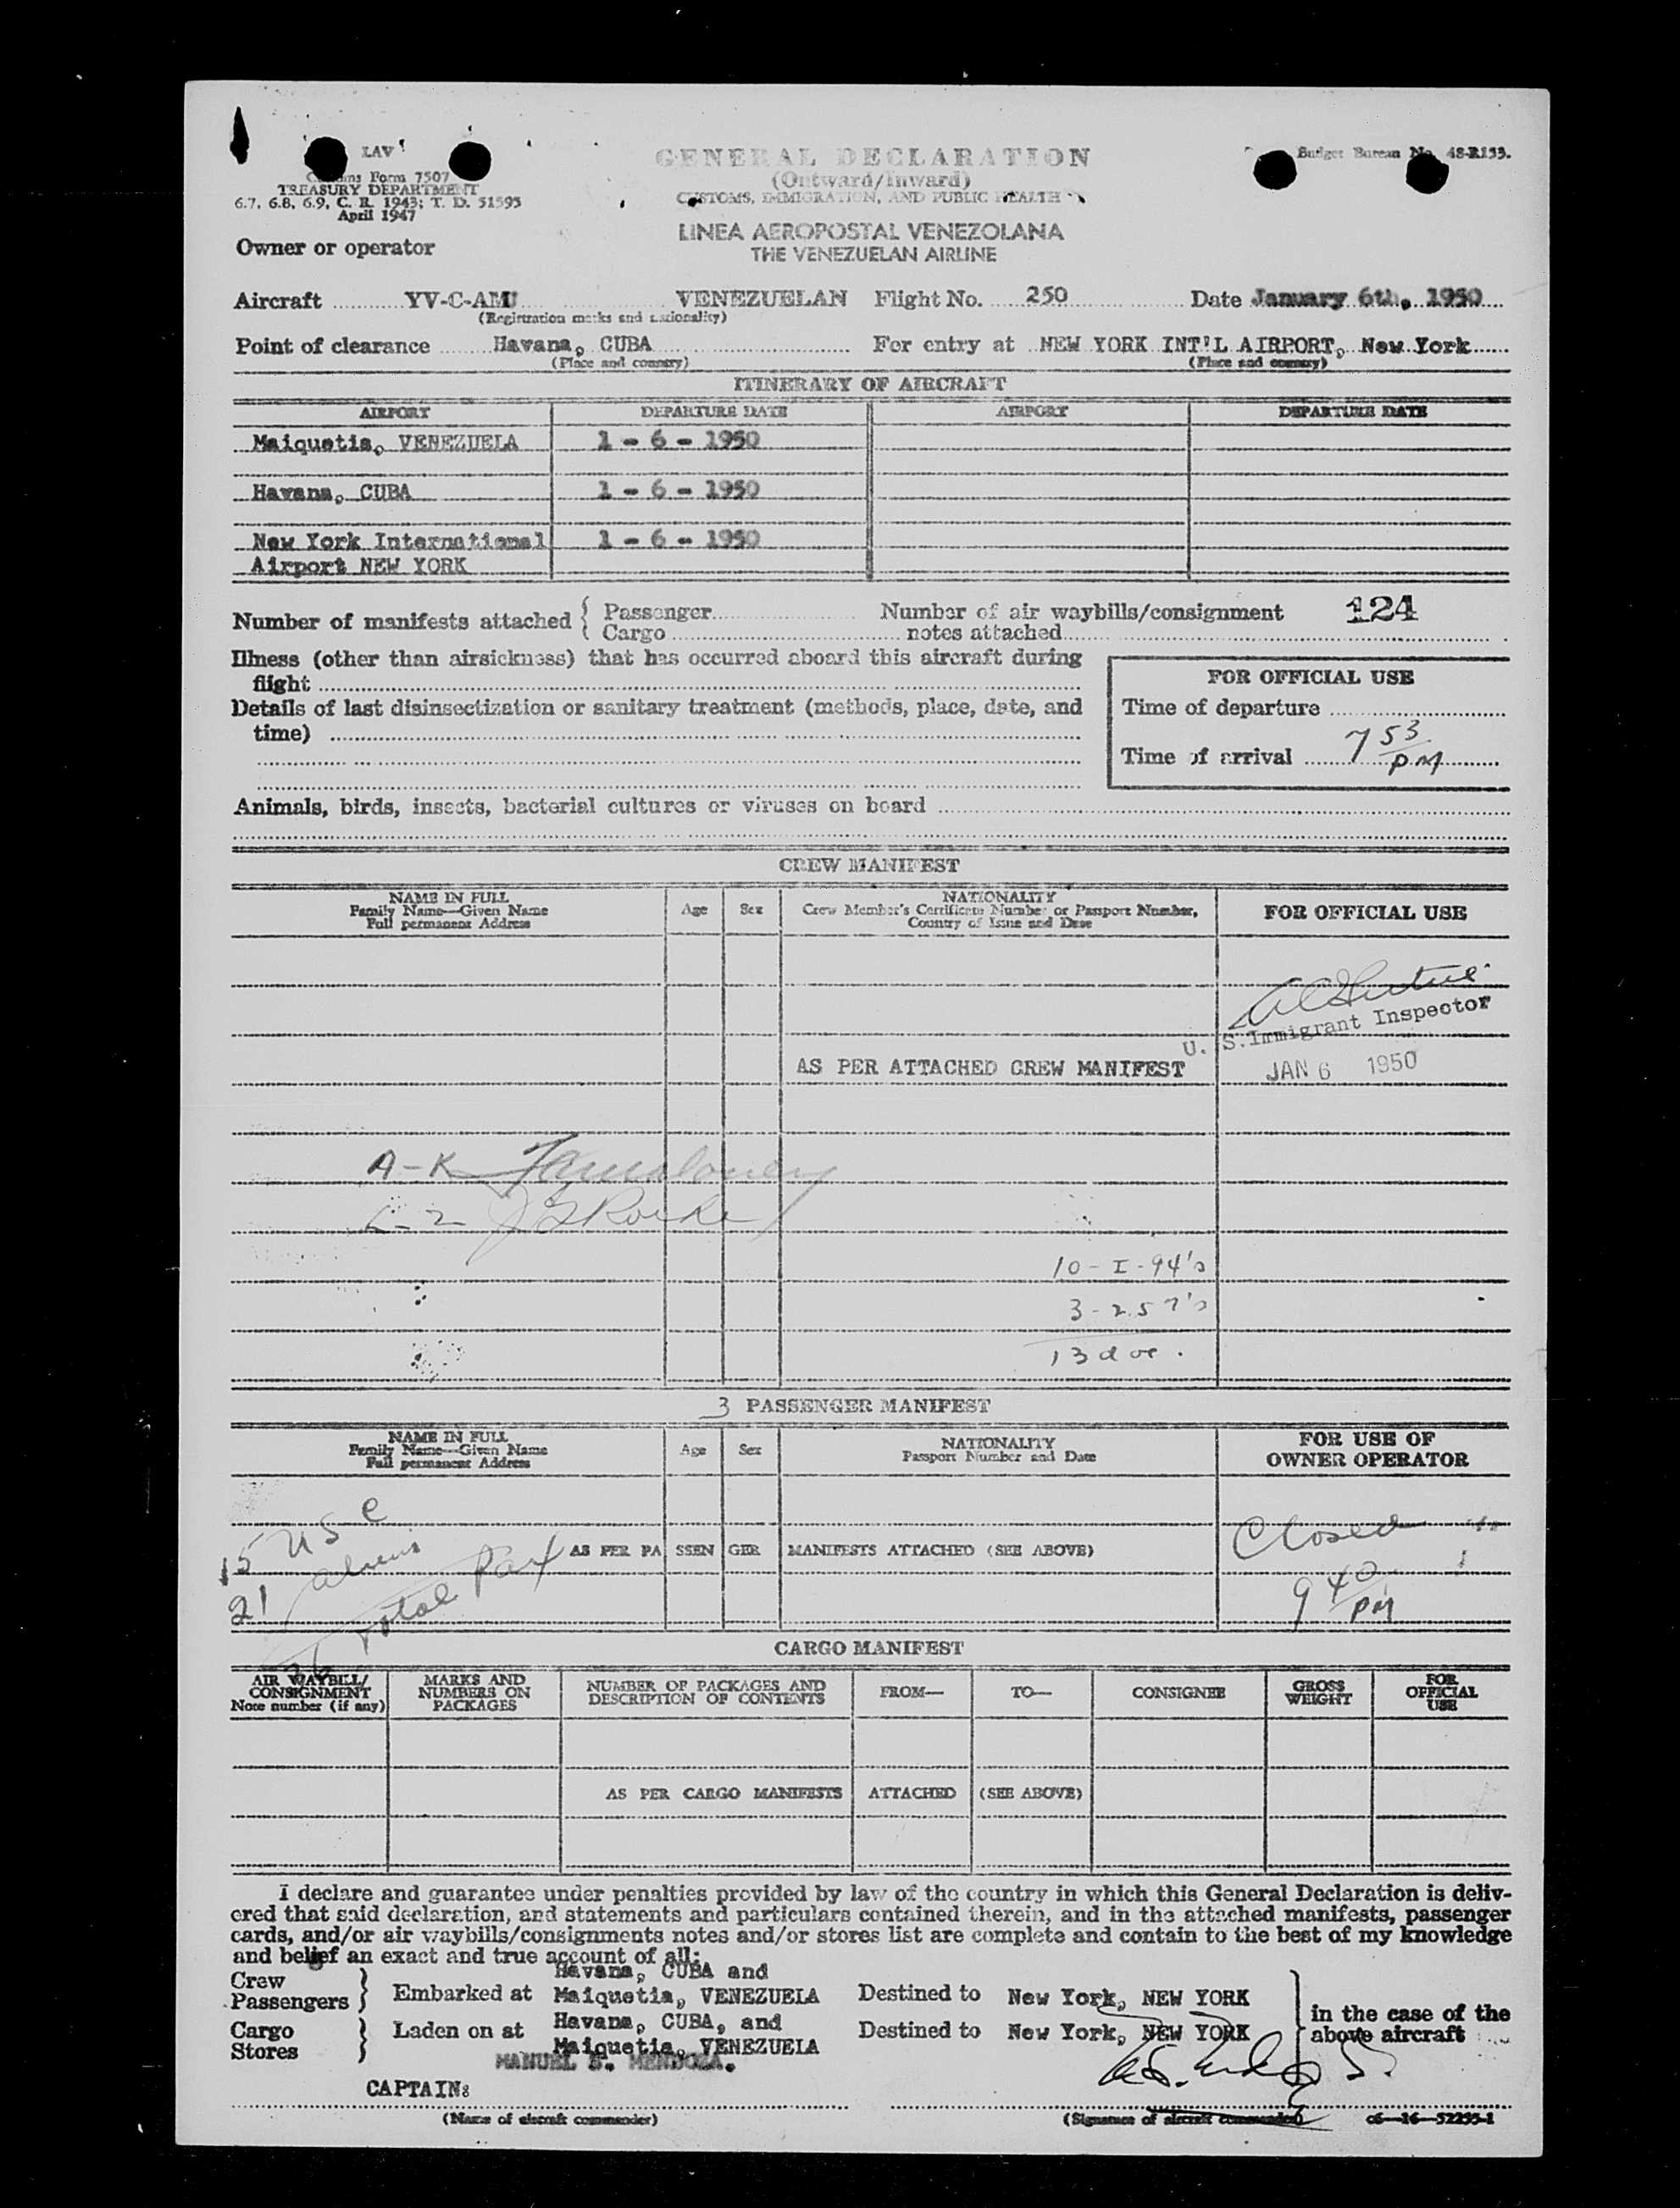 LAV
Customs Form 7507
TREASURY DEPARTMENT
6.7, 6.8, 6.9, C. R. 1943; T. D. 51595
April 1947
GENERAL DECLARATION
(Outward/Inward)
CUSTOMS, IMMIGRATION, AND PUBLIC HEALTH
Budget Bureau No. 48-R133.
LINEA AEROPOSTAL VENEZOLANA
THE VENEZUELAN AIRLINE
Owner or operator
Aircraft YV-C-AMU VENEZUELAN Flight No. 250 Date January 6th, 1950
(Registration marks and nationality)
Point of clearance Havana, CUBA For entry at NEW YORK INT'L AIRPORT, New York
(Place and country) (Place and country)
ITINERARY OF AIRCRAFT
AIRPORT DEPARTURE DATE AIRPORT DEPARTURE DATE
Maiquetia, VENEZUELA 1 - 6 - 1950
Havana, CUBA 1 - 6 - 1950
New York International 1 - 6 - 1950
Airport NEW YORK
Number of manifests attached { Passenger Number of air waybills/consignment 124
Cargo notes attached
Illness (other than airsickness) that has occurred aboard this aircraft during
flight
Details of last disinsectization or sanitary treatment (methods, place, date, and
time)
FOR OFFICIAL USE
Time of departure
Time of arrival 7 53 PM
Animals, birds, insects, bacterial cultures or viruses on board
CREW MANIFEST
NAME IN FULL
Family Name—Given Name
Full permanent Address
Age Sex
NATIONALITY
Crew Member's Certificate Number or Passport Number,
Country of Issue and Date
FOR OFFICIAL USE
U. S. Immigrant Inspector
AS PER ATTACHED CREW MANIFEST JAN 6 1950
A-K
10 - I - 94's
3 - 257's
13
3 PASSENGER MANIFEST
NAME IN FULL
Family Name—Given Name
Full permanent Address
Age Sex
NATIONALITY
Passport Number and Date
FOR USE OF
OWNER OPERATOR
15 USC
21 aliens
36 Total Pax
AS PER PASSENGER MANIFESTS ATTACHED (SEE ABOVE)
Closed
9 40 PM
CARGO MANIFEST
AIR WAYBILL/
CONSIGNMENT
Note number (if any)
MARKS AND
NUMBERS ON
PACKAGES
NUMBER OF PACKAGES AND
DESCRIPTION OF CONTENTS
FROM— TO— CONSIGNEE
GROSS
WEIGHT
FOR
OFFICIAL
USE
AS PER CARGO MANIFESTS ATTACHED (SEE ABOVE)
I declare and guarantee under penalties provided by law of the country in which this General Declaration is deliv-
ered that said declaration, and statements and particulars contained therein, and in the attached manifests, passenger
cards, and/or air waybills/consignments notes and/or stores list are complete and contain to the best of my knowledge
and belief an exact and true account of all:
Havana, CUBA and
Crew
Passengers } Embarked at Maiquetia, VENEZUELA Destined to New York, NEW YORK
Havana, CUBA, and
Cargo
Stores } Laden on at Maiquetia, VENEZUELA Destined to New York, NEW YORK
in the case of the
above aircraft
MANUEL S. MENDOZA.
CAPTAIN:
(Name of aircraft commander) (Signature of aircraft commander) c6—16—52295-1